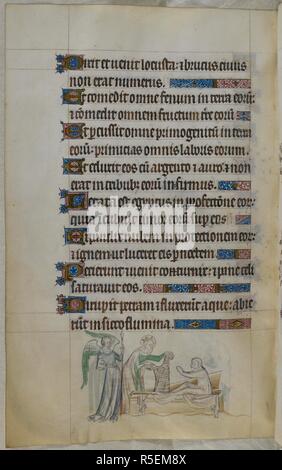 Dixit et venit locusta: et brucus cuius
non erat numerus.
Et comedit omne fenum in terra eorū:
et comedit omnem fructum tre eorū
Et percussit omne primogenitū in terra
eorū: primicias omnis laboris eorum.
Et eduxit eos cū argento et auro: et non
erat in tribubz eorū infirmus.
Letata est egyptus in profectione eorū
quia timor eorū sup eos
Expandit nubem in protectionem eorū
et ignem ut luceret eis p noctem
Pecierunt et venit coturnix: et pane celi
saturavit eos.
Dirupit petram et fluxerūt aque: abie
rūt in sicco flumina.
alamy
Image ID: R5EM8X
www.alamy.com